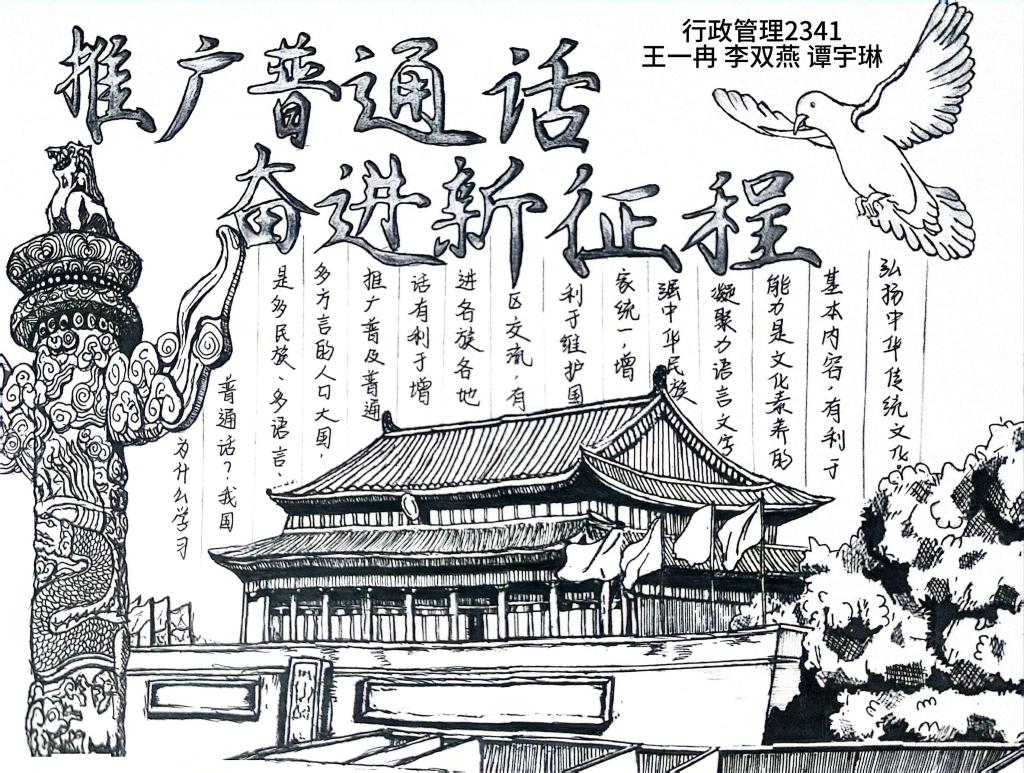 行政管理2341
王一冉 李双燕 谭宇琳
推广普通话
奋进新征程
为什么学习
普通话？我国
是多民族、多语言、
多方言的人口大国，
推广普及普通
话有利于增
进各族各地
区交流，有
利于维护国
家统一，增
强中华民族
凝聚力语言文字
能力是文化素养的
基本内容，有利于
弘扬中华传统文化